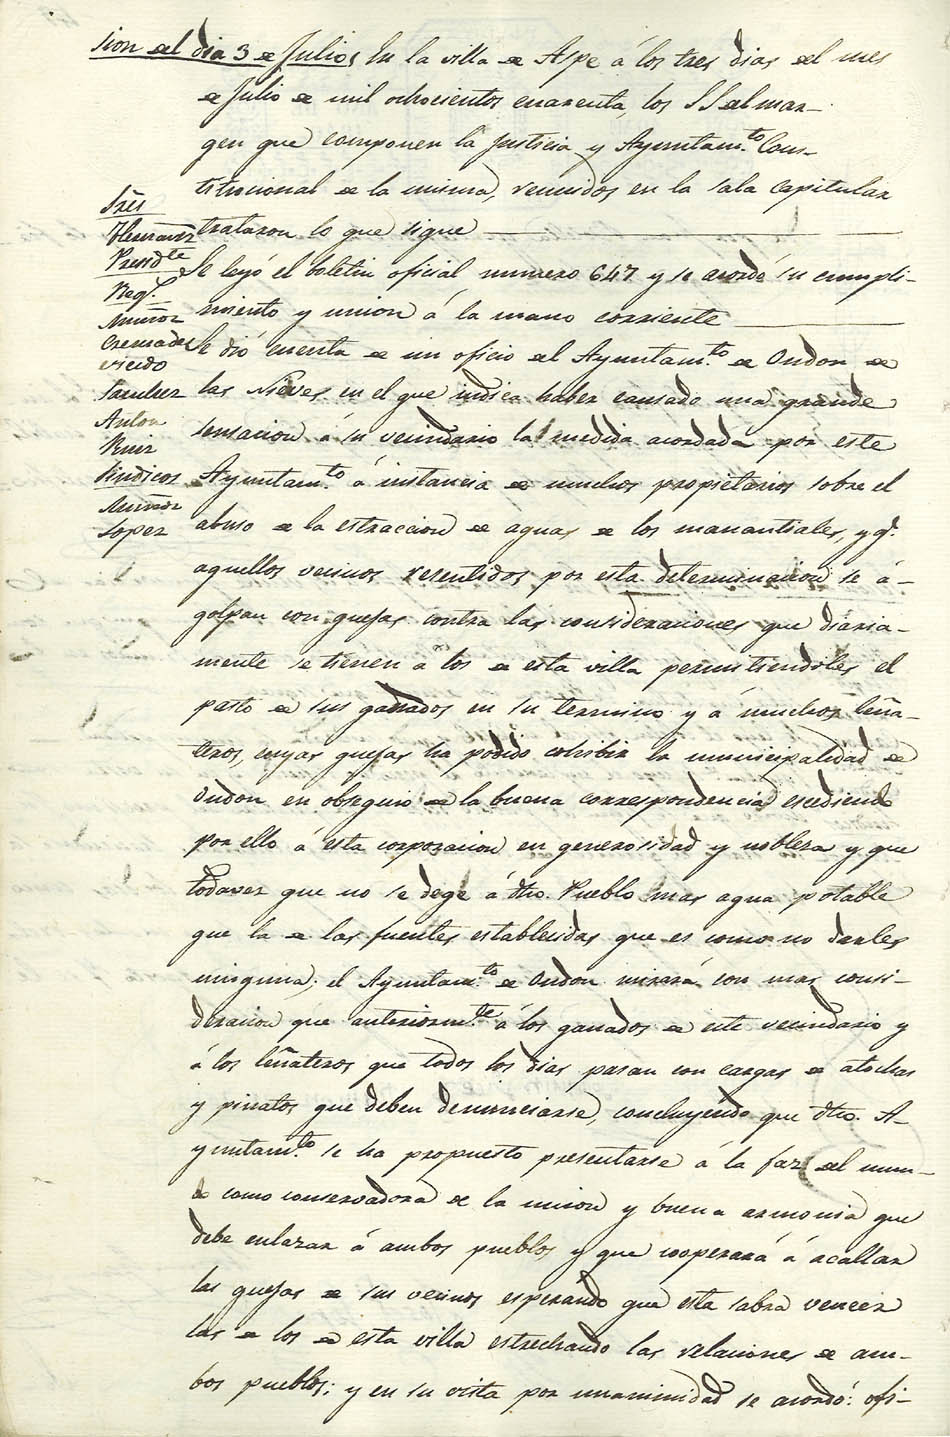 sion del dia 3 de Julio, En la villa de Aspe á los tres dias del mes
de Julio de mil ochocientos cuarenta, los SS del mar-
gen que componen la Justicia y Ayuntam.to Cons-
titucional de la misma, reunidos en la sala capitular
trataron lo que sigue
Sres
Presid.te
Reg.s
Muñoz
Cremades
Sanchez
Anton
Ruiz
Sindicos
Muñoz
Lopez
Se leyó el boletin oficial numero 647 y se acordó su cumpli-
miento y union á la mano corriente
Se dió cuenta de un oficio del Ayuntam.to de Ondon de
las Nieves en el que indica haber causado una grande
sensacion á su vecindario la medida acordada por este
Ayuntam.to á instancia de muchos propietarios sobre el
abuso de la estraccion de aguas de los manantiales, y q.e
aquellos vecinos resentidos por esta determinacion se á-
golpan con quejas contra las consideraciones que diaria-
mente se tienen á los de esta villa permitiendoles el
pasto de sus ganados en su termino y á muchos leña-
teros, cuyas quejas ha podido cohibir la municipalidad de
Ondon en obsequio de la buena correspondencia escediendo
por ello á esta corporacion en generosidad y nobleza y que
todavez que no se dege á dho. Pueblo mas agua potable
que la de las fuentes establecidas que es como no darles
ninguna, el Ayuntam.to de Ondon mirará con mas consi-
deracion que anteriorm.te á los ganados de este vecindario y
á los leñateros que todos los dias pasan con cargas de atochas
y pinatos que deben denunciarse, concluyendo que dho. A-
yuntam.to se ha propuesto presentarse á la fáz del mun-
do como conservadora de la union y buena armonia que
debe enlazar á ambos pueblos y que cooperará á acallar
las quejas de sus vecinos esperando que esta sabra vencer
las de los de esta villa estrechando las relaciones de am-
bos pueblos; y en su vista por unaminidad se acordó: ofi-